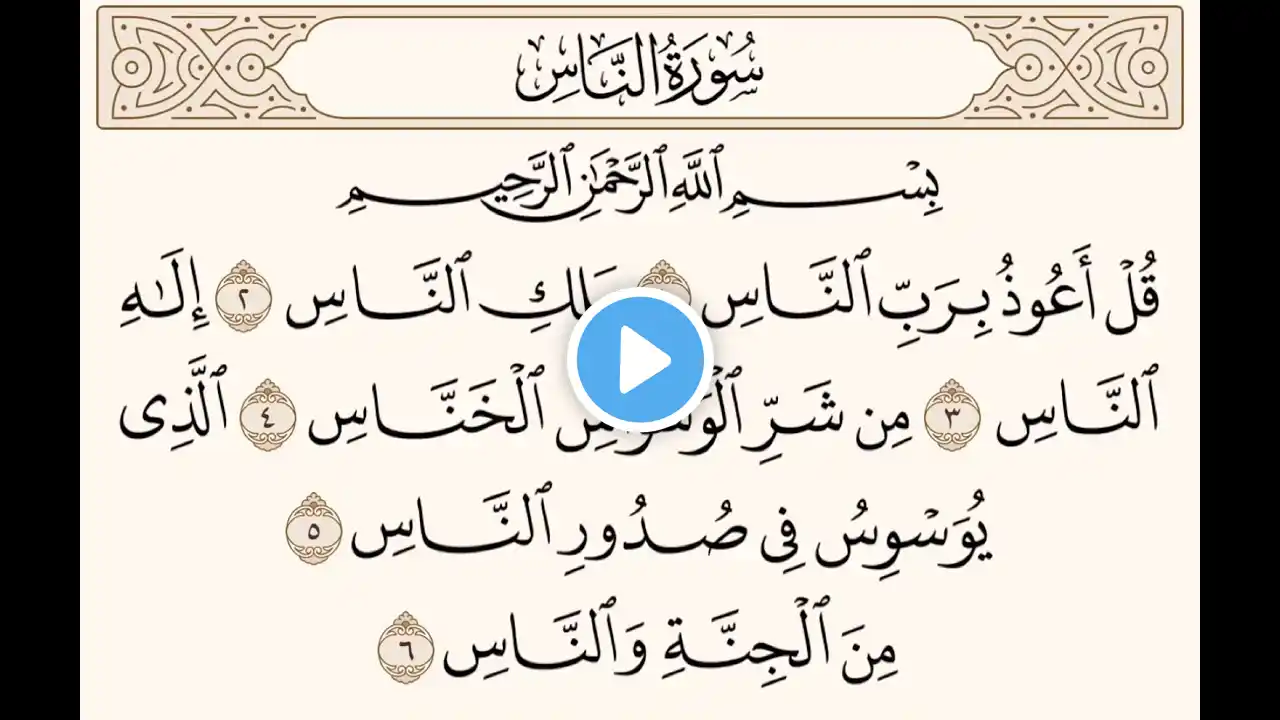 سُورَةُ النَّاسِ
بِسْمِ ٱللَّهِ ٱلرَّحْمَٰنِ ٱلرَّحِيمِ
قُلْ أَعُوذُ بِرَبِّ ٱلنَّاسِ ٱلنَّاسِ ٢ إِلَٰهِ
ٱلنَّاسِ ٣ مِن شَرِّ ٱلْخَنَّاسِ ٤ ٱلَّذِى
يُوَسْوِسُ فِى صُدُورِ ٱلنَّاسِ ٥
مِنَ ٱلْجِنَّةِ وَٱلنَّاسِ ٦